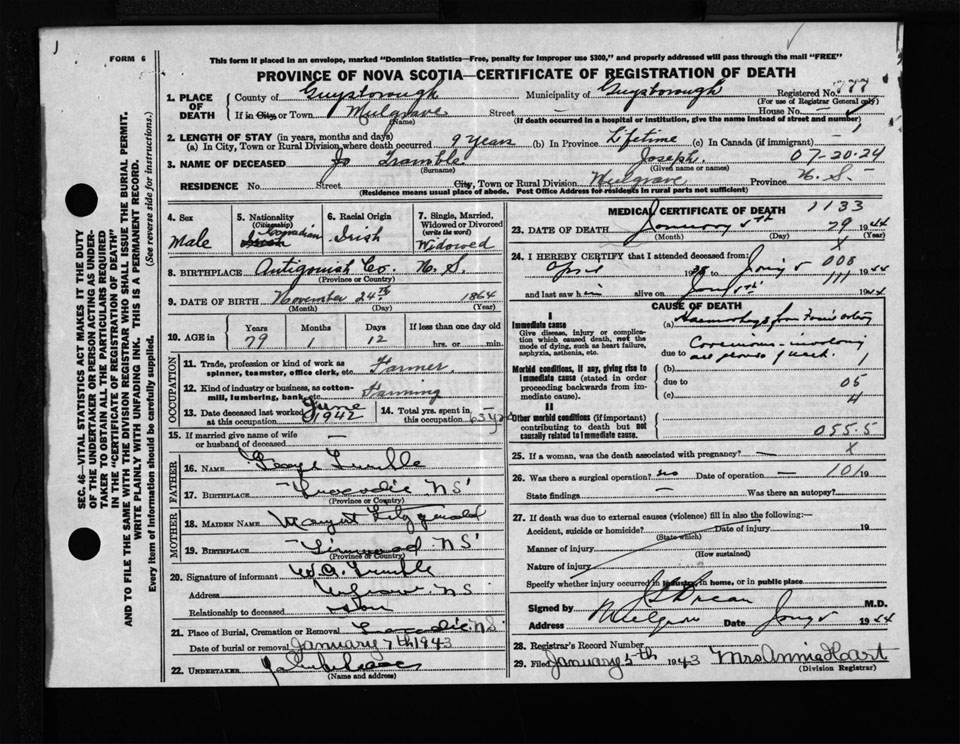 FORM 6
This form if placed in an envelope, marked "Dominion Statistics—Free, penalty for improper use $300," and properly addressed will pass through the mail "FREE"
PROVINCE OF NOVA SCOTIA—CERTIFICATE OF REGISTRATION OF DEATH
1. PLACE OF DEATH County of Guysborough Municipality of Guysborough Registered No. 777
(For use of Registrar General only)
If in City or Town Mulgrave Street — House No.
(Name) (If death occurred in a hospital or institution, give the name instead of street and number)
2. LENGTH OF STAY (in years, months and days)
(a) In City, Town or Rural Division where death occurred 9 years (b) In Province Lifetime (c) In Canada (if immigrant)
3. NAME OF DECEASED Joseph. 07-20-24
(Surname) (Given name or names)
RESIDENCE No. Street City, Town or Rural Division Mulgrave Province N.S.
(Residence means usual place of abode. Post Office Address for residents in rural parts not sufficient)
4. Sex Male
5. Nationality (Citizenship) Canadian
6. Racial Origin Irish
7. Single, Married, Widowed or Divorced (write the word) Widowed
8. BIRTHPLACE Antigonish Co. N.S.
(Province or Country)
9. DATE OF BIRTH November 24th 1864
(Month) (Day) (Year)
10. AGE in Years 79 Months 1 Days 12 If less than one day old hrs. or min.
OCCUPATION
11. Trade, profession or kind of work as spinner, teamster, office clerk, etc. Farmer
12. Kind of industry or business, as cotton-mill, lumbering, bank, etc. Farming
13. Date deceased last worked at this occupation June 1942
14. Total yrs. spent in this occupation
15. If married give name of wife or husband of deceased —
FATHER
16. NAME George
17. BIRTHPLACE Tracadie NS
(Province or Country)
MOTHER
18. MAIDEN NAME Fitzgerald
19. BIRTHPLACE Linwood NS
(Province or Country)
20. Signature of informant
Address Mulgrave NS
Relationship to deceased son
21. Place of Burial, Cremation or Removal Tracadie NS
Date of burial or removal January 7th 1943
22. UNDERTAKER
(Name and address)
MEDICAL CERTIFICATE OF DEATH 1133
23. DATE OF DEATH January 5th 79 1944
(Month) (Day) (Year)
X
24. I HEREBY CERTIFY that I attended deceased from:
April 19 Jany 5 008
and last saw h im alive on Jany 5th 111 1944
CAUSE OF DEATH
I
Immediate cause
Give disease, injury or complication which caused death, not the mode of dying, such as heart failure, asphyxia, asthenia, etc.
(a) Haemorrhage from
due to
Morbid conditions, if any, giving rise to immediate cause (stated in order proceeding backwards from immediate cause).
(b)
due to 05
(c) 4
II
Other morbid conditions (if important) contributing to death but not causally related to immediate cause.
055.5
25. If a woman, was the death associated with pregnancy? — X
26. Was there a surgical operation? no Date of operation — 101 19
State findings — Was there an autopsy?
27. If death was due to external causes (violence) fill in also the following:—
Accident, suicide or homicide? Date of injury 19
(State which)
Manner of injury
(How sustained)
Nature of injury
Specify whether injury occurred in industry, in home, or in public place
Signed by M.D.
Address Mulgrave Date Jany 5 1944
28. Registrar's Record Number
29. Filed January 5th 1943 Mrs Annie Hart
(Division Registrar)
SEC. 46—VITAL STATISTICS ACT MAKES IT THE DUTY
OF THE UNDERTAKER OR PERSON ACTING AS UNDER-
TAKER TO OBTAIN ALL THE PARTICULARS REQUIRED
IN THE "CERTIFICATE OF REGISTRATION OF DEATH"
AND TO FILE THE SAME WITH THE DIVISION REGISTRAR WHO SHALL ISSUE THE BURIAL PERMIT.
WRITE PLAINLY WITH UNFADING INK. THIS IS A PERMANENT RECORD.
Every item of Information should be carefully supplied. (See reverse side for instructions.)